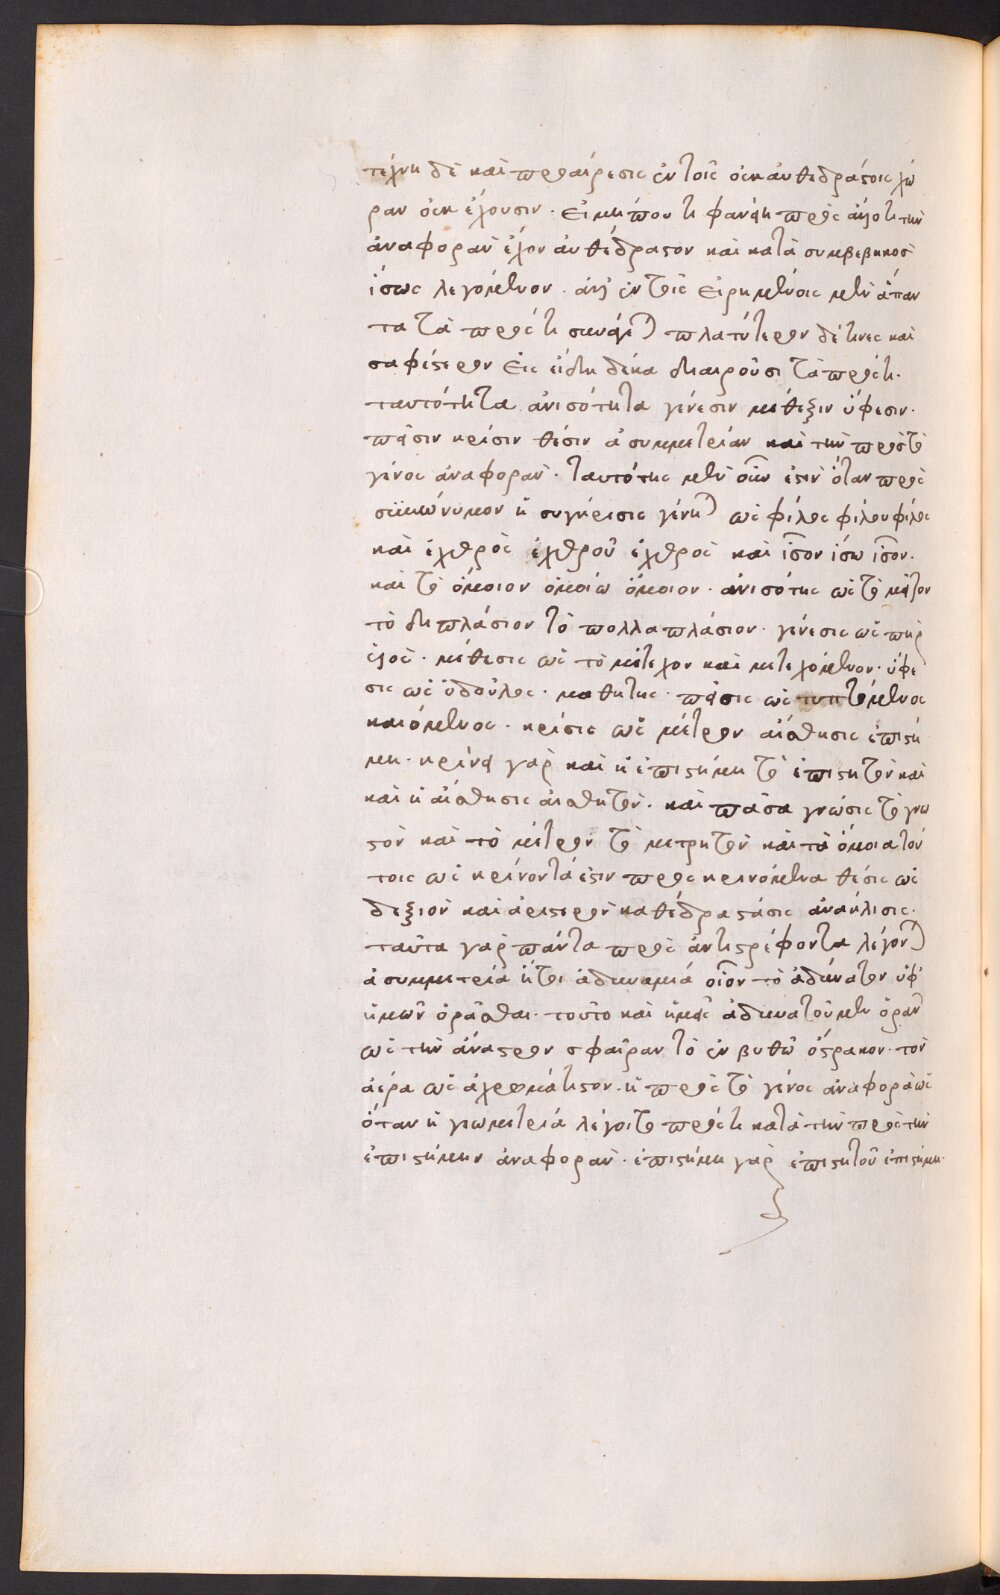 τέχνη δὲ καὶ προαίρεσις ἐν τοῖς οὐκ ἀνθεδράστοις χώ
ραν οὐκ ἔχουσιν. εἰ μή που τι φανείη πρὸς ἄλλο τι τὴν
ἀναφορὰν ἔχον ἀνθέδραστον καὶ κατὰ συμβεβηκὸς
ἴσως λεγόμενον. ἀλλ' ἐν τοῖς εἰρημένοις μὲν ἅπαν
τα τὰ πρός τι συνάγεται πλατύτερον δέ τινες καὶ
σαφέστερον εἰς εἴδη δέκα διαιροῦσι τὰ πρός τι.
ταυτότητα ἀνισότητα γένεσιν μέθεξιν ὕφεσιν.
πεῖσιν κρίσιν θέσιν ἀσυμμετρίαν καὶ τὴν πρὸς τὸ
γένος ἀναφοράν. ταυτότης μὲν οὖν ἐστὶν ὅταν πρὸς
συνώνυμον ἡ σύγκρισις γένηται ὡς φίλος φίλου φίλος
καὶ ἐχθρὸς ἐχθροῦ ἐχθρὸς καὶ ἴσον ἴσω ἴσον.
καὶ τὸ ὅμοιον ὁμοίω ὅμοιον. ἀνισότης ὡς τὸ μεῖζον
τὸ διπλάσιον τὸ πολλαπλάσιον. γένεσις ὡς πατὴρ
υἱός. μέθεσις ὡς τὸ μέτεχον καὶ μετεχόμενον. ὕφε
σις ὡς ὁ δοῦλος. μαθητής. πεῖσις ὡς τυπτόμενος
καιόμενος. κρίσις ὡς μέτρον αἴσθησις ἐπιστή
μη. κρίνει γὰρ καὶ ἡ ἐπιστήμη τὸ ἐπιστητὸν καὶ
καὶ ἡ αἴσθησις αἰσθητόν. καὶ πᾶσα γνῶσις τὸ γνω
στὸν καὶ τὸ μέτρον τὸ μετρητὸν καὶ τὰ ὅμοια τού
τοις ὡς κρίνοντά ἐστιν πρὸς κρινόμενα θέσις ὡς
δεξιὸν καὶ ἀριστερὸν καθέδρα στάσις ἀνάκλισις.
ταῦτα γὰρ πάντα πρὸς ἀντιστρέφοντα λέγονται
ἀσυμμετρία ἤτοι ἀδυναμία οἷον τὸ ἀδύνατον ὑφ'
ἡμῶν ὁρᾶσθαι. τοῦτο καὶ ἡμεῖς ἀδυνατοῦμεν ὁρᾶν
ὡς τὴν ἄναστρον σφαῖραν τὸ ἐν βυθῶ ὄστρακον. τὸν
ἀέρα ὡς ἀχρωμάτιστον. ἡ πρὸς τὸ γένος ἀναφορὰ ὡς
ὅταν ἡ γεωμετρία λέγοιτο πρός τι κατὰ τὴν πρὸς τὴν
ἐπιστήμην ἀναφοράν. ἐπιστήμη γὰρ ἐπιστητοῦ ἐπιστήμη.